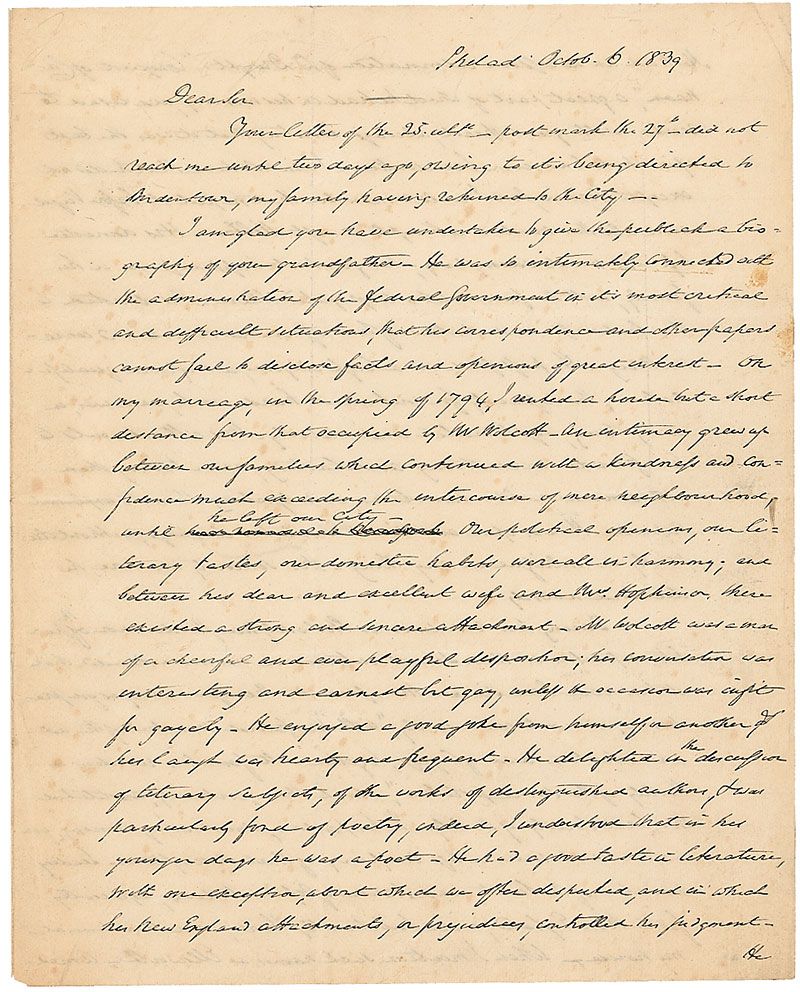 Philad. Octob. 6. 1839
Dear Sir
Your letter of the 25. ulto - post mark the 27th - did not
reach me until two days ago, owing to it's being directed to
Bordentown, my family having returned to the City -
I am glad you have undertaken to give the publick a bio=
graphy of your grandfather - He was so intimately connected with
the administration of the federal Government in it's most critical
and difficult situations, that his correspondence and other papers
cannot fail to disclose facts and opinions of great interest - On
my marriage, in the spring of 1794, I rented a house but a short
distance from that occupied by Mr Wolcott - An intimacy grew up
between our families which continued with a kindness and con=
fidence much exceeding the intercourse of mere neighbourhood,
he left our City -
until Our political opinions, our li=
terary tastes, our domestic habits, were all in harmony; and
between his dear and excellent wife and Mrs. Hopkinson, there
existed a strong and sincere attachment - Mr Wolcott was a man
of a cheerful and even playful disposition; his conversation was
interesting and earnest but gay, unless the occasion was unfit
for gayety - He enjoyed a good joke from himself or another &
his laugh was hearty and frequent - He delighted in the discussion
of literary subjects, of the works of distinguished authors, & was
particularly fond of poetry, indeed, I understood that in his
younger days he was a poet - He had a good taste in literature,
with one exception, about which we often disputed, and in which
his New England attachments, or prejudices, controlled his judgment -
He